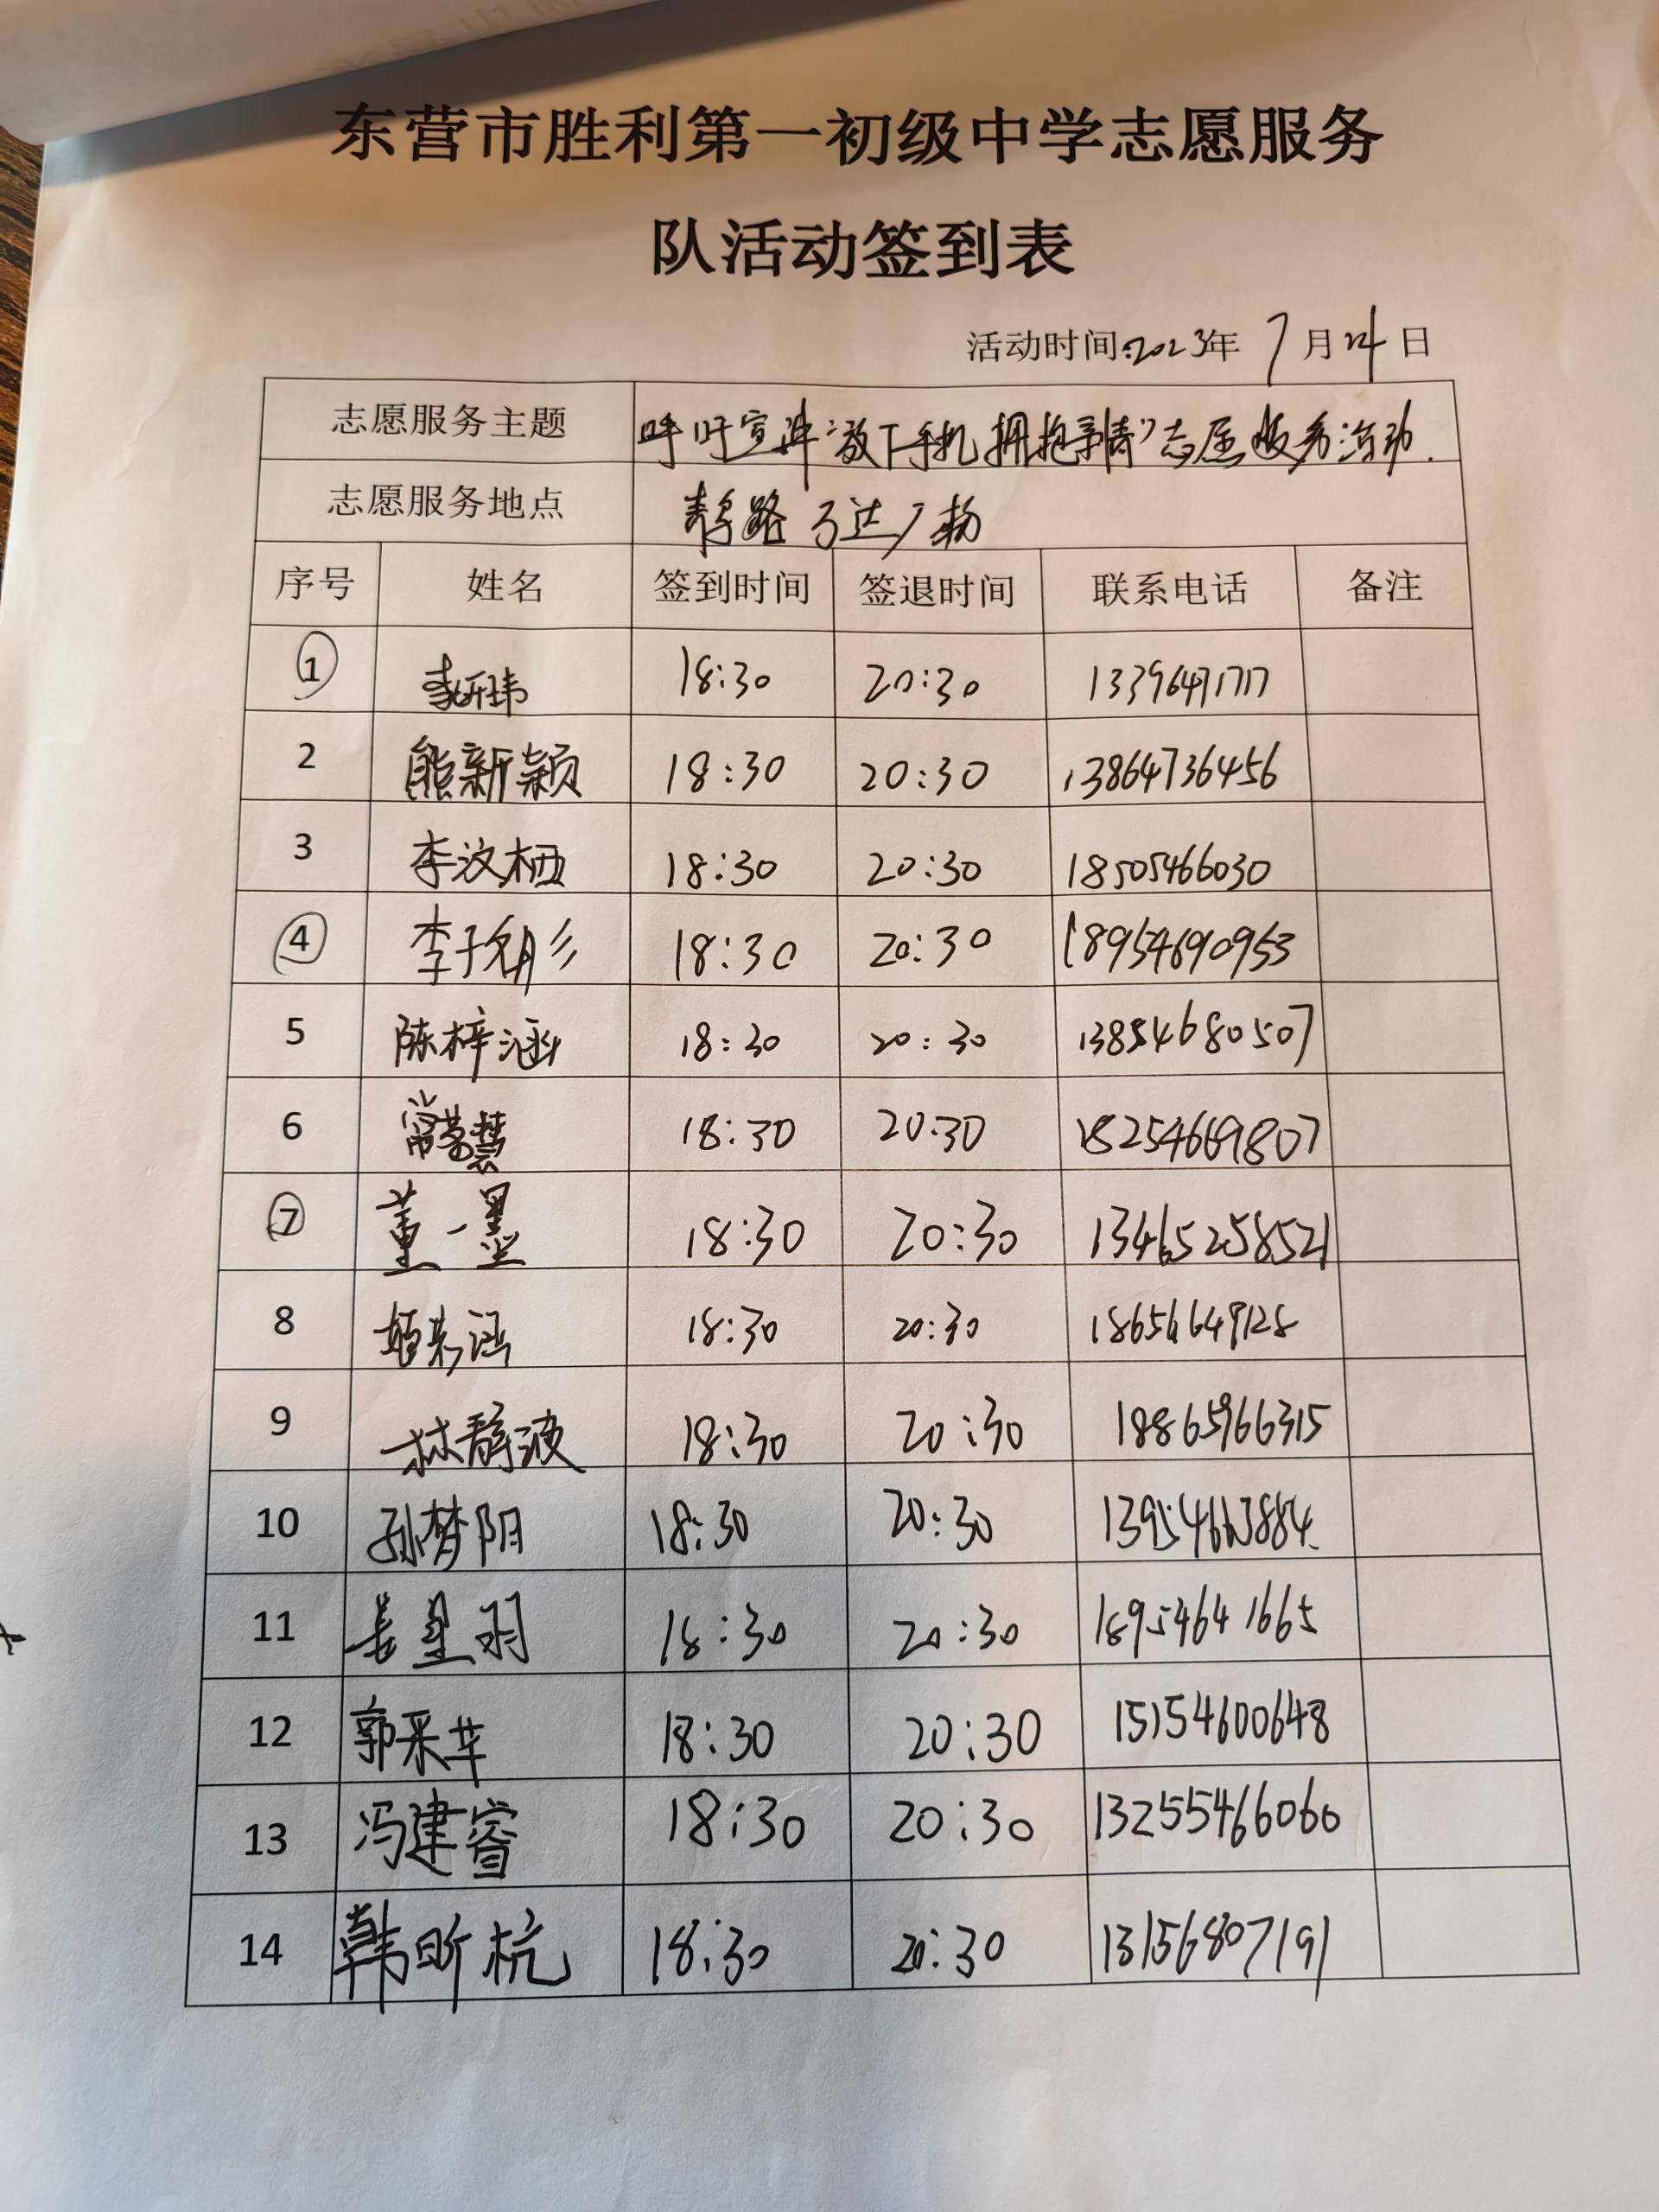 东营市胜利第一初级中学志愿服务
队活动签到表
活动时间:2023年 7月24日
志愿服务主题 呼吁宣讲“放下手机 拥抱亲情”志愿服务活动.
志愿服务地点 青岛路 万达广场
序号 姓名 签到时间 签退时间 联系电话 备注
1 18:30 20:30
2 熊新颖 18:30 20:30 13864736456
3 李汶栖 18:30 20:30 18505466030
4 李子 18:30 20:30 18954690953
5 陈梓涵 18:30 20:30 13854680507
6 常慧 18:30 20:30 18254669807
7 董一墨 18:30 20:30 13465258521
8 18:30 20:30 18656649128
9 林静波 18:30 20:30 18865966315
10 孙梦阳 18:30 20:30
11 姜星羽 18:30 20:30 18954641665
12 郭采苹 18:30 20:30 15154600648
13 冯建睿 18:30 20:30 13255466060
14 韩昕杭 18:30 20:30 13156807191